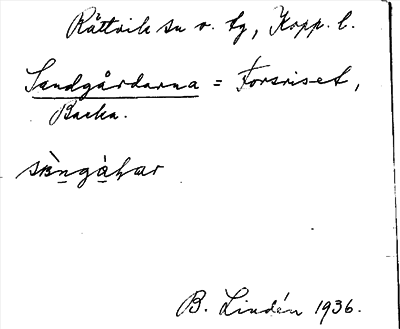 Rättvik sn o. tg, Kopp. l.
Sandgårdarna = Forsriset,
Backa.
B. Lindén 1936.